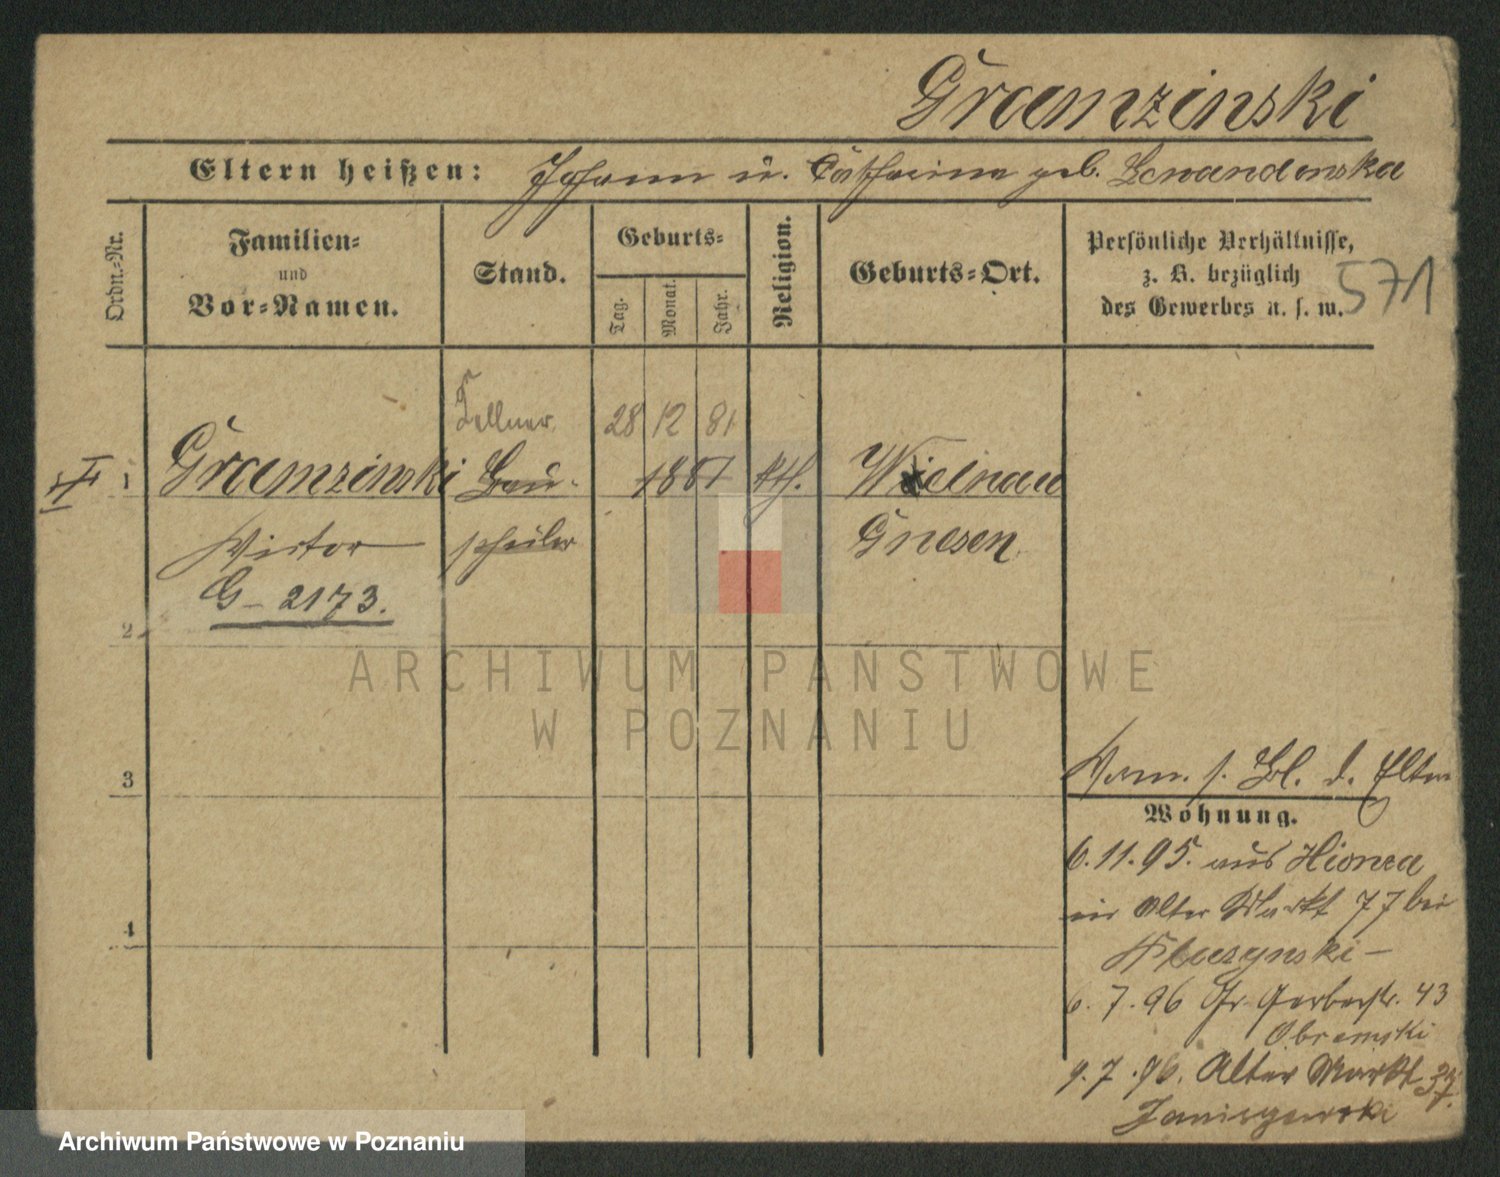 Gramzinski
Eltern heißen: Johann u. Catharina geb. Lewandowska
Ordn.-Nr.
Familien-
und
Vor-Namen.
Stand.
Geburts-
Tag.
Monat.
Jahr.
Religion.
Geburts-Ort.
Persönliche Verhältnisse,
z. B. bezüglich
des Gewerbes u. s. w.
571
Kellner 28 12 81
1 Gramzinski Lauf- 1881 kth. Wielnau
Victor Gnesen
G - 2173.
2
3
4
ARCHIWUM PAŃSTWOWE
W POZNANIU
Verm. s. Bl. d. Eltern
Wohnung.
6.11.95. aus
Alter Markt 77 bei
6.7.96 Gr. Gerberstr. 43
Obremski
9.7.96. Alter Markt 37.
Janiszewski
Archiwum Państwowe w Poznaniu